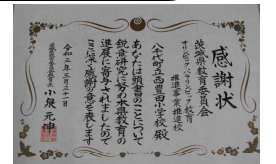 感謝状
茨城県教育委員会
オリンピック・パラリンピック教育
推進事業推進校
八千代町立西豊田小学校殿
あなたは頭書のことについて
鋭意研究に努め本県教育の
進展に寄与されましたので
ここに深く感謝の意を表します
令和三年三月三十一日
茨城県教育委員会教育長 小泉元伸